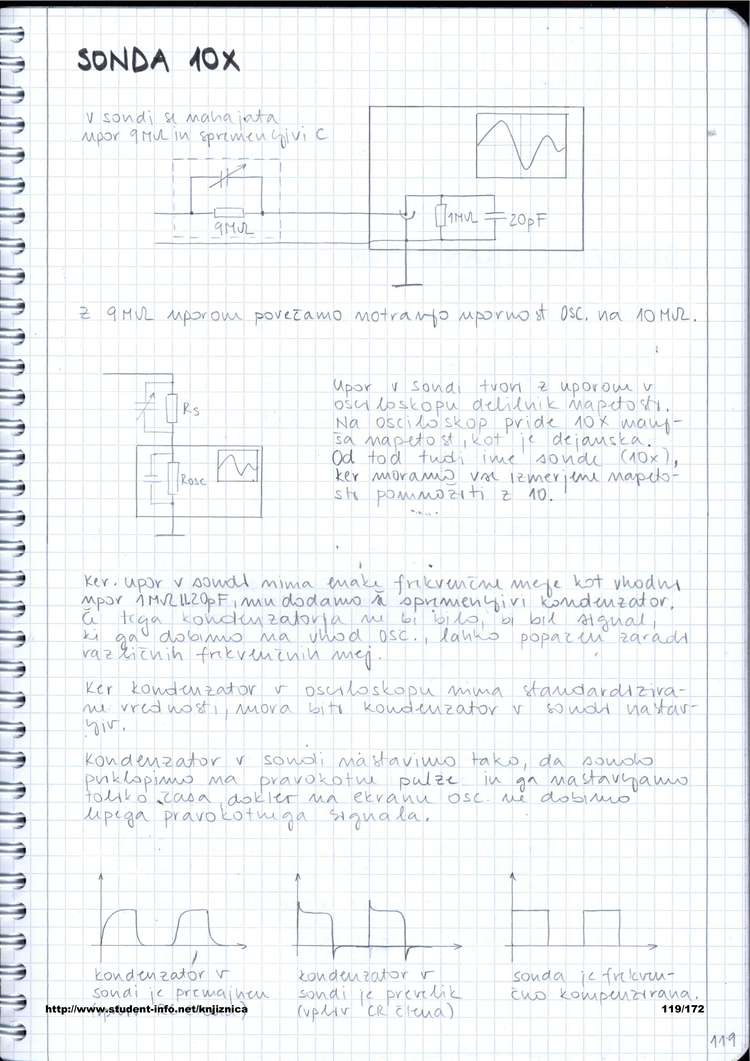 SONDA 10X
V sondi se nahajata
upor 9MΩ in spremenljivi C
9MΩ
1MΩ
20pF
Z 9MΩ uporom povečamo notranjo upornost OSC. na 10MΩ.
Rs
Rosc
Upor v sondi tvori z uporom v
osciloskopu delilnik napetosti.
Na osciloskop pride 10X manj-
ša napetost, kot je dejanska.
Od tod tudi ime sonde (10x),
ker moramo vse izmerjene napeto-
sti pomnožiti z 10.
Ker upor v sondi nima enake frekvenčne meje kot vhodni
upor 1MΩ||20pF, mu dodamo še spremenljivi kondenzator.
Če tega kondenzatorja ne bi bilo, bi bil signal,
ki ga dobimo na vhod OSC., lahko popačen zaradi
različnih frekvenčnih mej.
Ker kondenzator v osciloskopu nima standardizira-
ne vrednosti, mora biti kondenzator v sondi nastav-
ljiv.
Kondenzator v sondi nastavimo tako, da sondo
priklopimo na pravokotne pulze in ga nastavljamo
toliko časa, dokler na ekranu osc. ne dobimo
lepega pravokotnega signala.
kondenzator v
sondi je premajhen
kondenzator v
sondi je prevelik
(vpliv CR člena)
sonda je frekven-
čno kompenzirana.
http://www.student-info.net/knjiznica
119/172
119